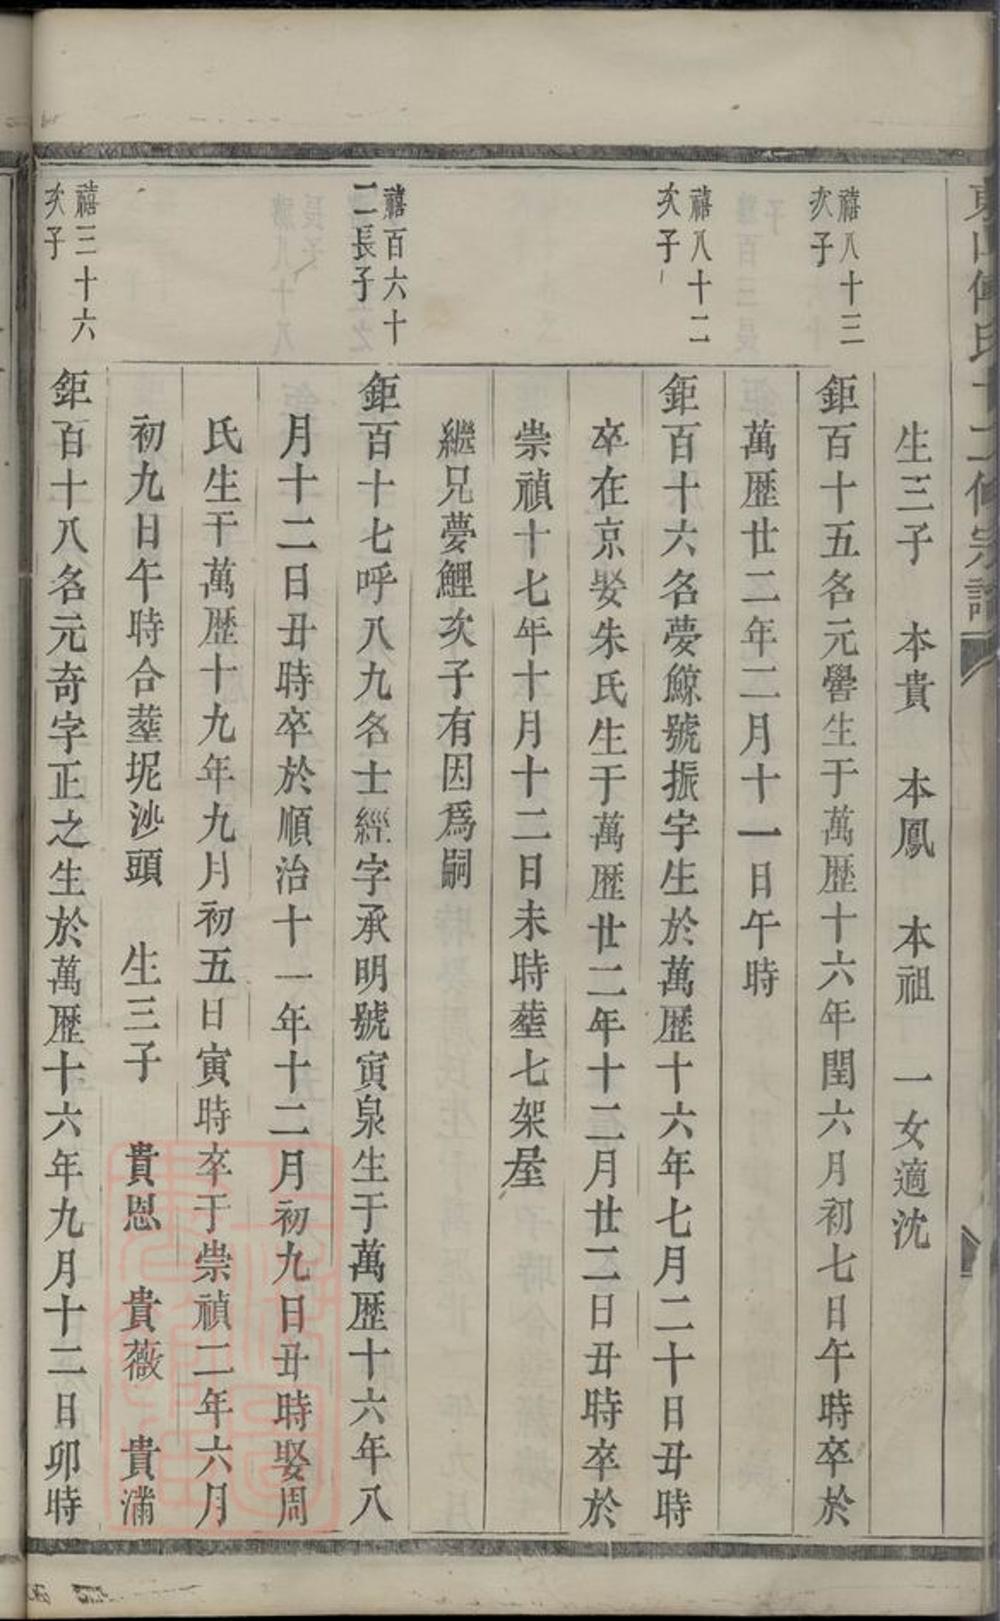 生三子 本貴 本鳳 本祖 一女適沈
禧八十三
次子
鉅百十五名元譽生于萬歷十六年閏六月初七日午時卒於
萬歷廿二年二月十一日午時
禧八十二
次子
鉅百十六名夢鯨號振宇生於萬歷十六年七月二十日丑時
卒在京娶朱氏生于萬歷廿二年十二月廿二日丑時卒於
崇禎十七年十月十二日未時塟七架屋
繼兄夢鯉次子有因爲嗣
禧百六十
二長子
鉅百十七呼八九名士經字承明號寅泉生于萬歷十六年八
月十二日丑時卒於順治十一年十二月初九日丑時娶周
氏生于萬歷十九年九月初五日寅時卒于崇禎二年六月
初九日午時合塟坭沙頭 生三子 貴恩 貴薇 貴滿
禧三十六
次子
鉅百十八名元奇字正之生於萬歷十六年九月十二日卯時